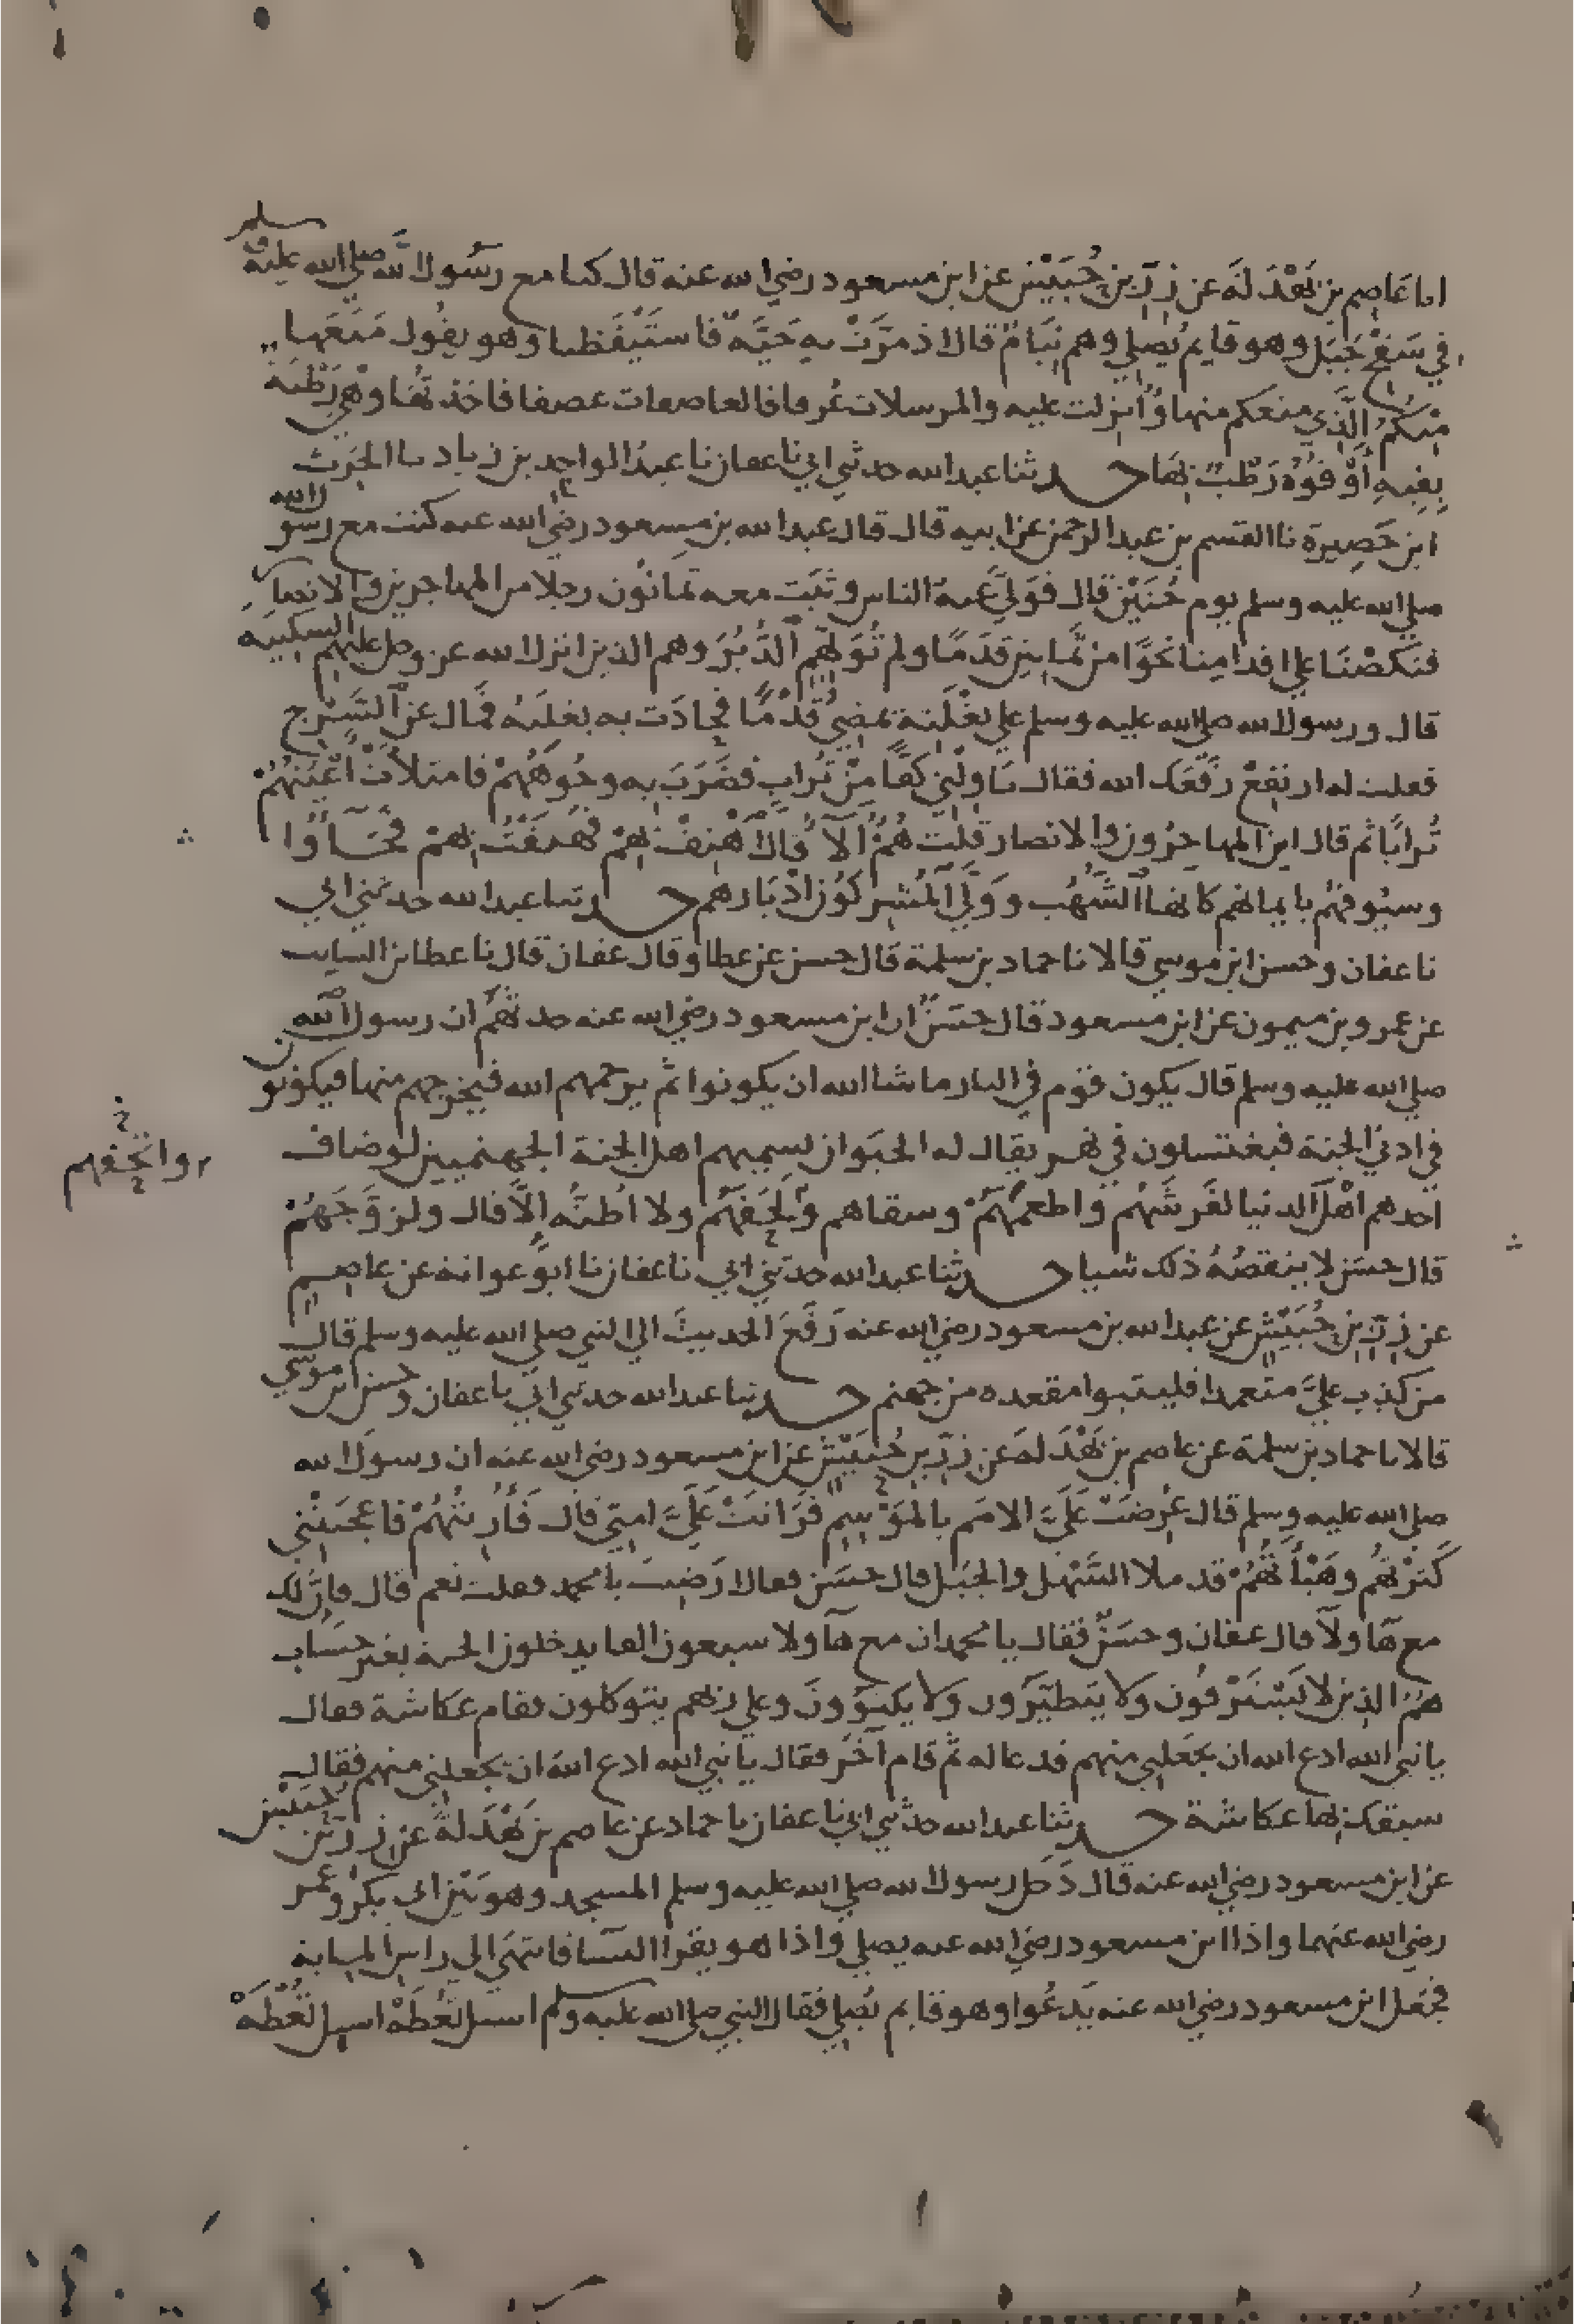 انا عَاصِم بن بَهْدَلَة عن زِرِّ بن حُبَيْش عن ابن مسعود رضي الله عنه قال كنا مع رسُول الله صلى الله عليه وسلم
في سَفْح جَبَل وهو قايم يُصلي وهم نِيَامٌ قال اذ مَرَّتْ به حَيَّة فاستَيْقَظنا وهو يقُول مَنَعَها
مِنكُمُ الَّذي منعكم منها وَأُنزلت عليه والمرسلات عُرفا فالعاصفات عصفا فاخذتُها وَهِيَ رَطْبَة
بِفِيهِ أَوْ فُوهُ رَطْبٌ بِهَا حدثنا عبد الله حدثني ابي نا عفان نا عبدُ الواحِد بن زياد نا الحَرِث
ابن حَصِيرة نا القسم بن عبد الرحمن عن ابيه قال قال عبد الله بن مسعود رضي الله عنه كنت مع رسُول الله
صلى الله عليه وسلم يوم حُنَيْن قال فَوَلَّى عَنه الناس وثَبَت معه ثمانُون رجلا من المهاجرين والانصار
فنَكصْنَا على اقدامِنا نَحْوًا من ثمانِين قَدَمًا ولم نُوَلِّهِم الدُّبُرَ وهم الذين انزل الله عز وجل عليهم السكينه
قال ورسول الله صلى الله عليه وسلم على بغْلَتة يمضِي قُدْمًا فحَادَت به بغلَتُه فمَال عن السَّرْج
فقلت له ارتفِعْ رَفَعَك الله فقال نَاوِلْنِي كَفًّا مِنْ تُرابٍ فضَرَبَ به وجُوهَهُمْ فامتلأتْ أَعْيُنهُمْ
تُرابًا ثم قال اين المهاجِرُون والانصار قلت هُمْ أُلآءِ قال اهْتِفْ بِهِمْ فهتفْتُ بهِمْ فجَاؤُا
وسيُوفهُم بايمانهم كانها الشُّهُب وَوَلَّى المُشركُون أدْبَارهم حدثنا عبد الله حدثني ابي
نا عفان وحسن ابن موسى قالا نا حماد بن سلمة قال حسن عن عطا وقال عفان قال نا عطا بن السايب
عن عمرو بن ميمون عن ابن مسعود قال حسَنٌ ان ابن مسعود رضي الله عنه حدثهُم ان رسول الله
صلى الله عليه وسلم قال يكون قوم في النار ما شا الله ان يكونوا ثم يرحمهم الله فيخرجهم منها فيكونون
في ادنى الجنة فيغتسلون في نهر يقال له الحيَوان يسميهم اهل الجنة الجهنميين لو ضاف
احدهم أهْل الدنيا لفَرشَهُم واطعمَهُمْ وسقاهم وَلَحَفَهُم ولا اظنُّه الا قال ولزوَّجَهُمْ
واتحفهم
قال حسَن لا ينقصُهُ ذلك شيا حدثنا عبد الله حدثني ابي نا عفان نا ابو عوانه عن عاصم
عن زِرِّ بنِ حُبَيْشٍ عن عبد الله بن مسعود رضي الله عنه رَفَعَ الحديثَ الى النبي صلى الله عليه وسلم قال
من كذب عليَّ متعمدا فليتبوا مقعده من جهنم حدثنا عبد الله حدثني ابي نا عفان وحسن ابن موسى
قالا نا حماد بن سلمة عن عاصم بن بَهْدَلة عن زِرِّ بن حُبَيْشٍ عن ابن مسعود رضي الله عنه ان رسول الله
صلى الله عليه وسلم قال عُرِضَتْ عَلَيَّ الامَم بالمَوْسِمِ فَرَاثَتْ عَلَيَّ امتِي قال فَأُرِيتُهُمْ فاعْجَبَتْنِي
كَثرتُهُم وهَيْأَتُهُمْ قد ملأ السَّهْل والجَبَل قال حسَن فقال ارَضيتَ يا محمد فقلت نعم قال فإنَّ لك
مع هَآولآ قال عفان وحسَنٌ فقال يا محمد ان مع هآولا سبعون الفا يدخلون الجنة بغير حسَاب
هُمُ الذين لا يَسْتَرْقُون ولا يتطيَّرَون ولا يكتوُونَ وعلى ربهم يتوكلون فقام عكاشة فقال
يا نبي الله ادع الله ان يجعلني منهم فدعا له ثم قام آخَر فقال يا نبي الله ادع الله ان يجعلني منهم فقال
سبقك بها عكاشة حدثنا عبد الله حدثني ابي نا عفان نا حماد عن عاصم بن بَهْدَلة عن زِرِّ بن حُبَيْش
عن ابن مسعود رضي الله عنه قال دَخل رسول الله صلى الله عليه وسلم المسجد وهو بَيْن ابي بكر وعمر
رضي الله عنهما واذا ابن مسعود رضي الله عنه يصلي واذا هو يقرا النسآ فانتهَى الى راس المِياية
فجَعَل ابن مسعود رضي الله عنه يَدعُوا وهو قايم يُصلِي فقال النبي صلى الله عليه وسلم اسل تُعْطَهْ اسل تُعْطَهْ